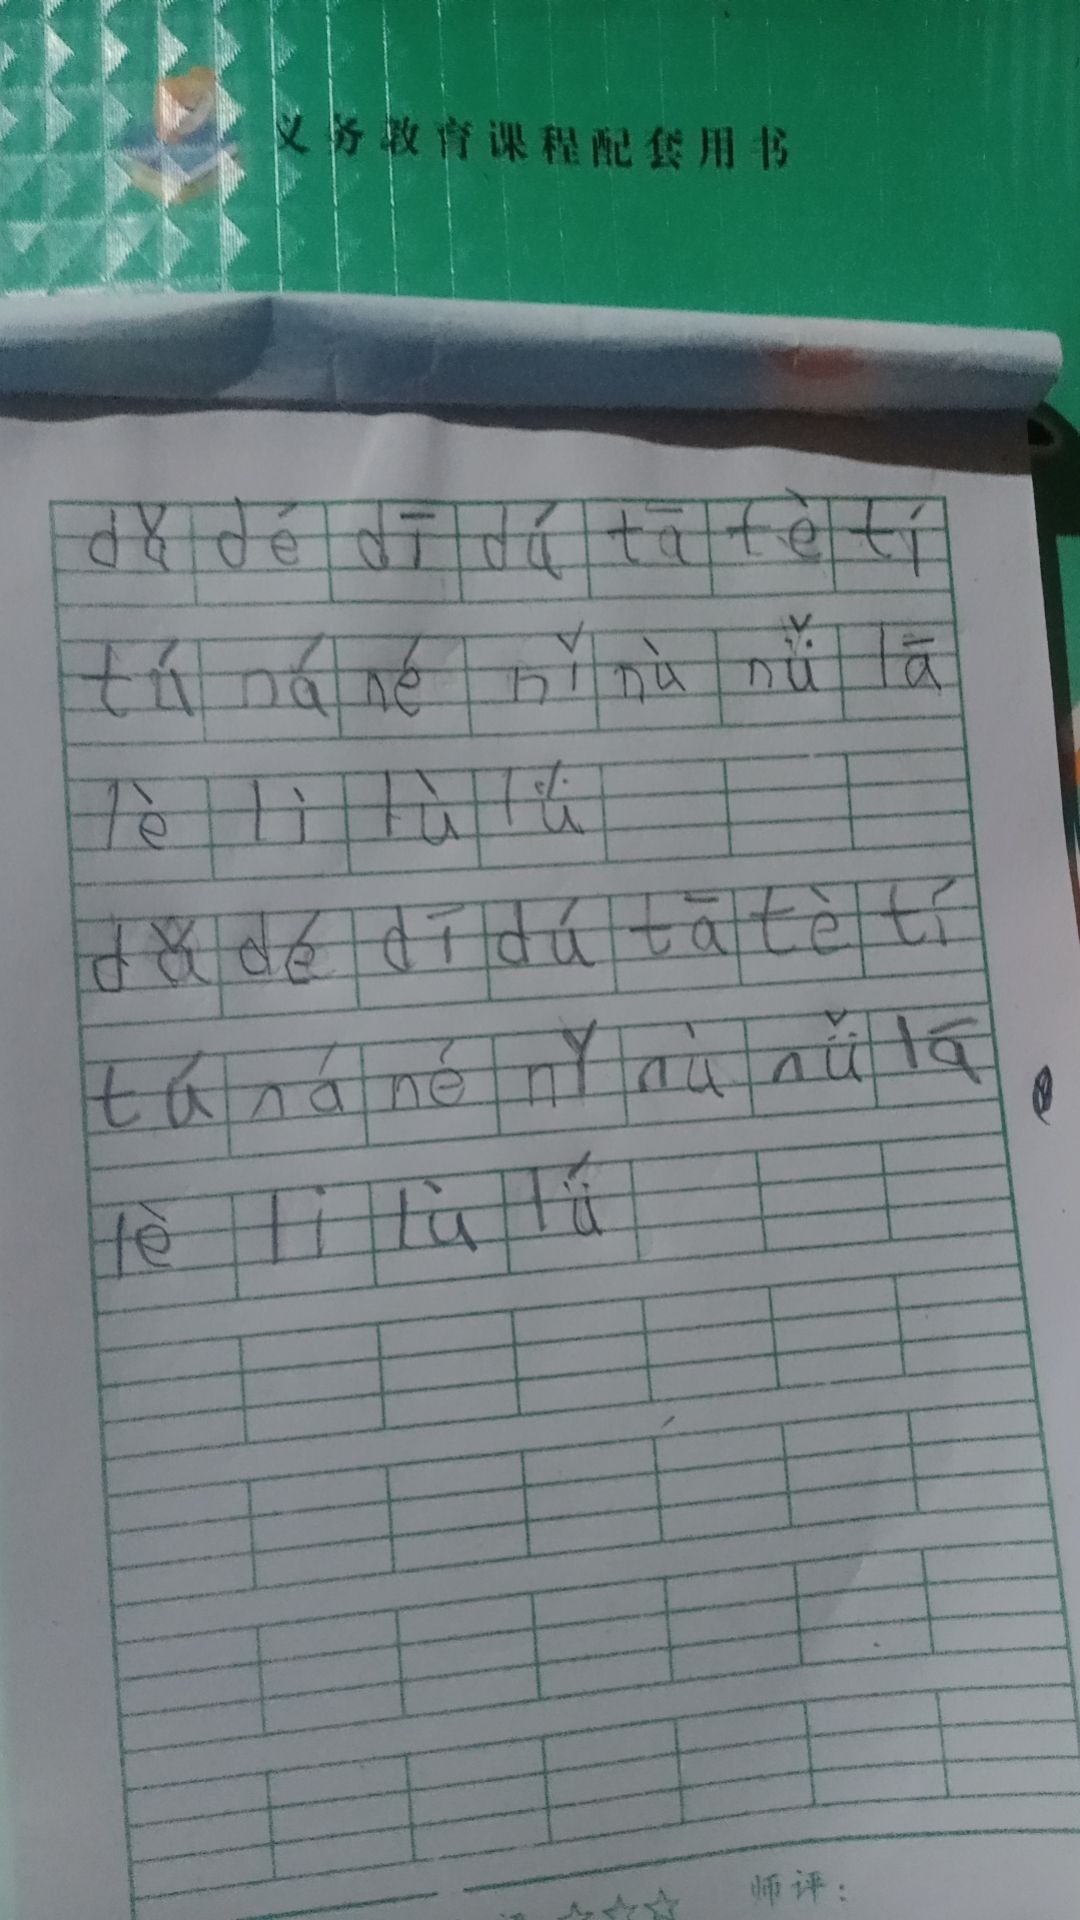 义务教育课程配套用书
dǎ dé dī dú tā tè tí
tú ná né nǐ nù nǚ lā
lè lì lù lǘ
dǎ dé dī dú tā tè tí
tú ná né nǐ nù nǚ lā
lè lì lù lǘ
☆☆☆ 师评：